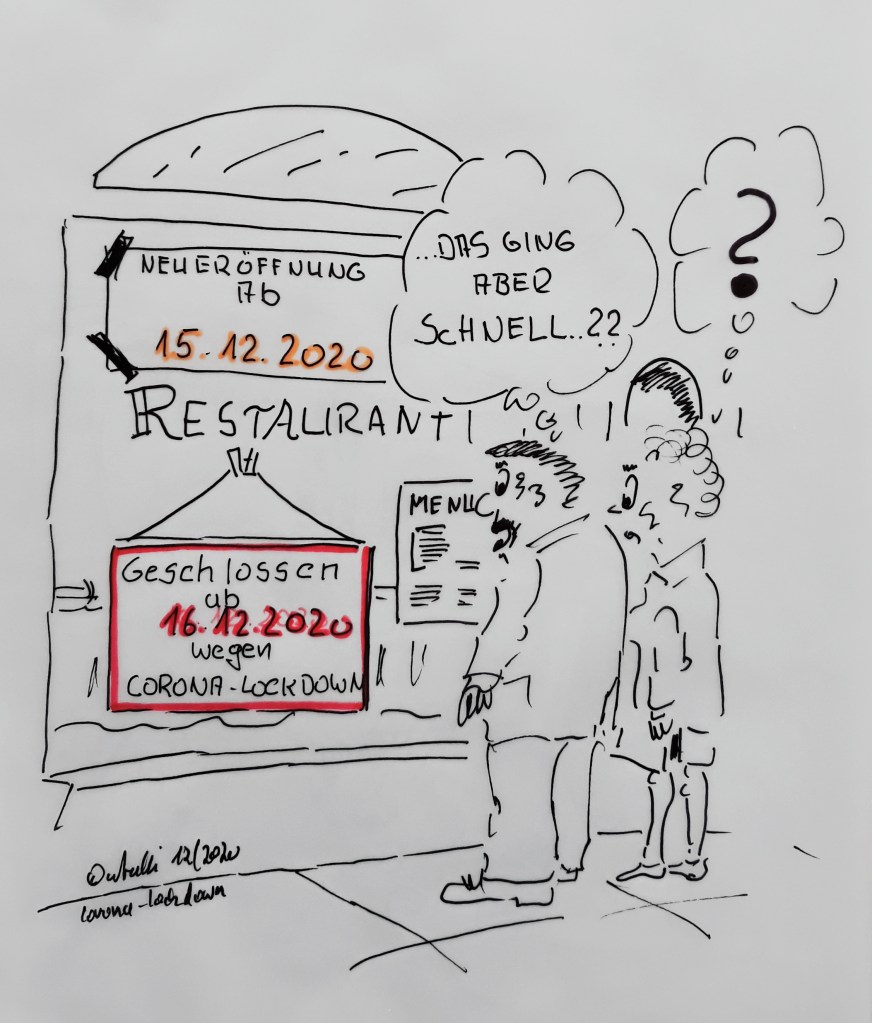 NEUERÖFFNUNG
Ab
15.12.2020
RESTAURANT
...DAS GING
ABER
SCHNELL..??
?
MENUC
Geschlossen
ab
16.12.2020
wegen
CORONA-LOCKDOWN
12/2020
Corona-Lockdown